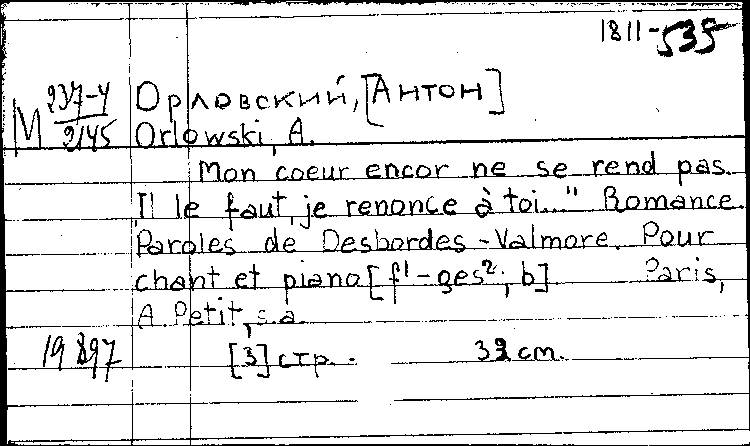 1811-535
М 237-4/2145 Орловский, [Антон]
Orlowski, A.
Mon coeur encor ne se rend pas.
"Il le faut, je renonce à toi..." Romance.
Paroles de Desbordes-Valmore. Pour
chant et piano [f¹-ges²; b] Paris,
A. Petit, s.a.
19 897 [3] стр. 32 cm.